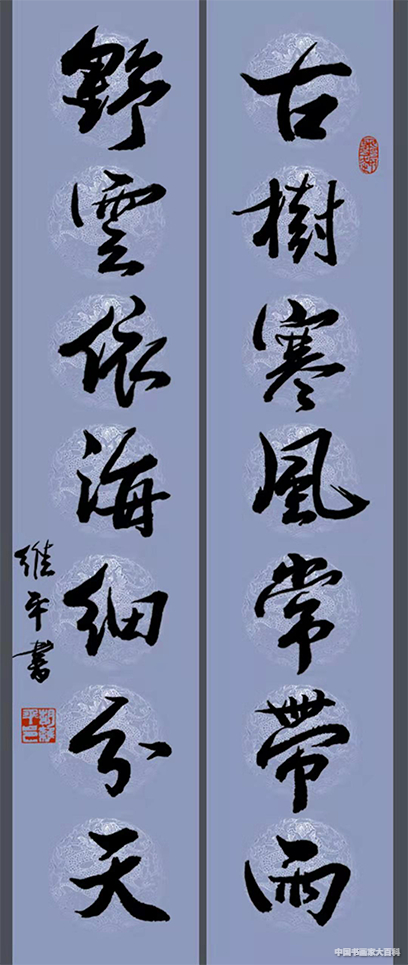 古樹寒風常帶雨
野雲依海細分天
維平書
中国书画家大百科